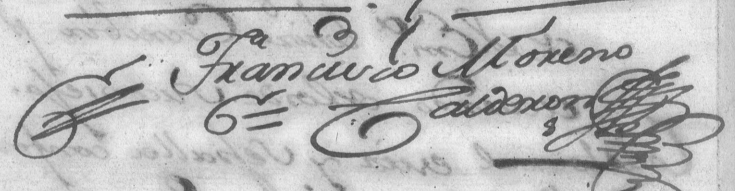 Francisco Moreno
Calderon